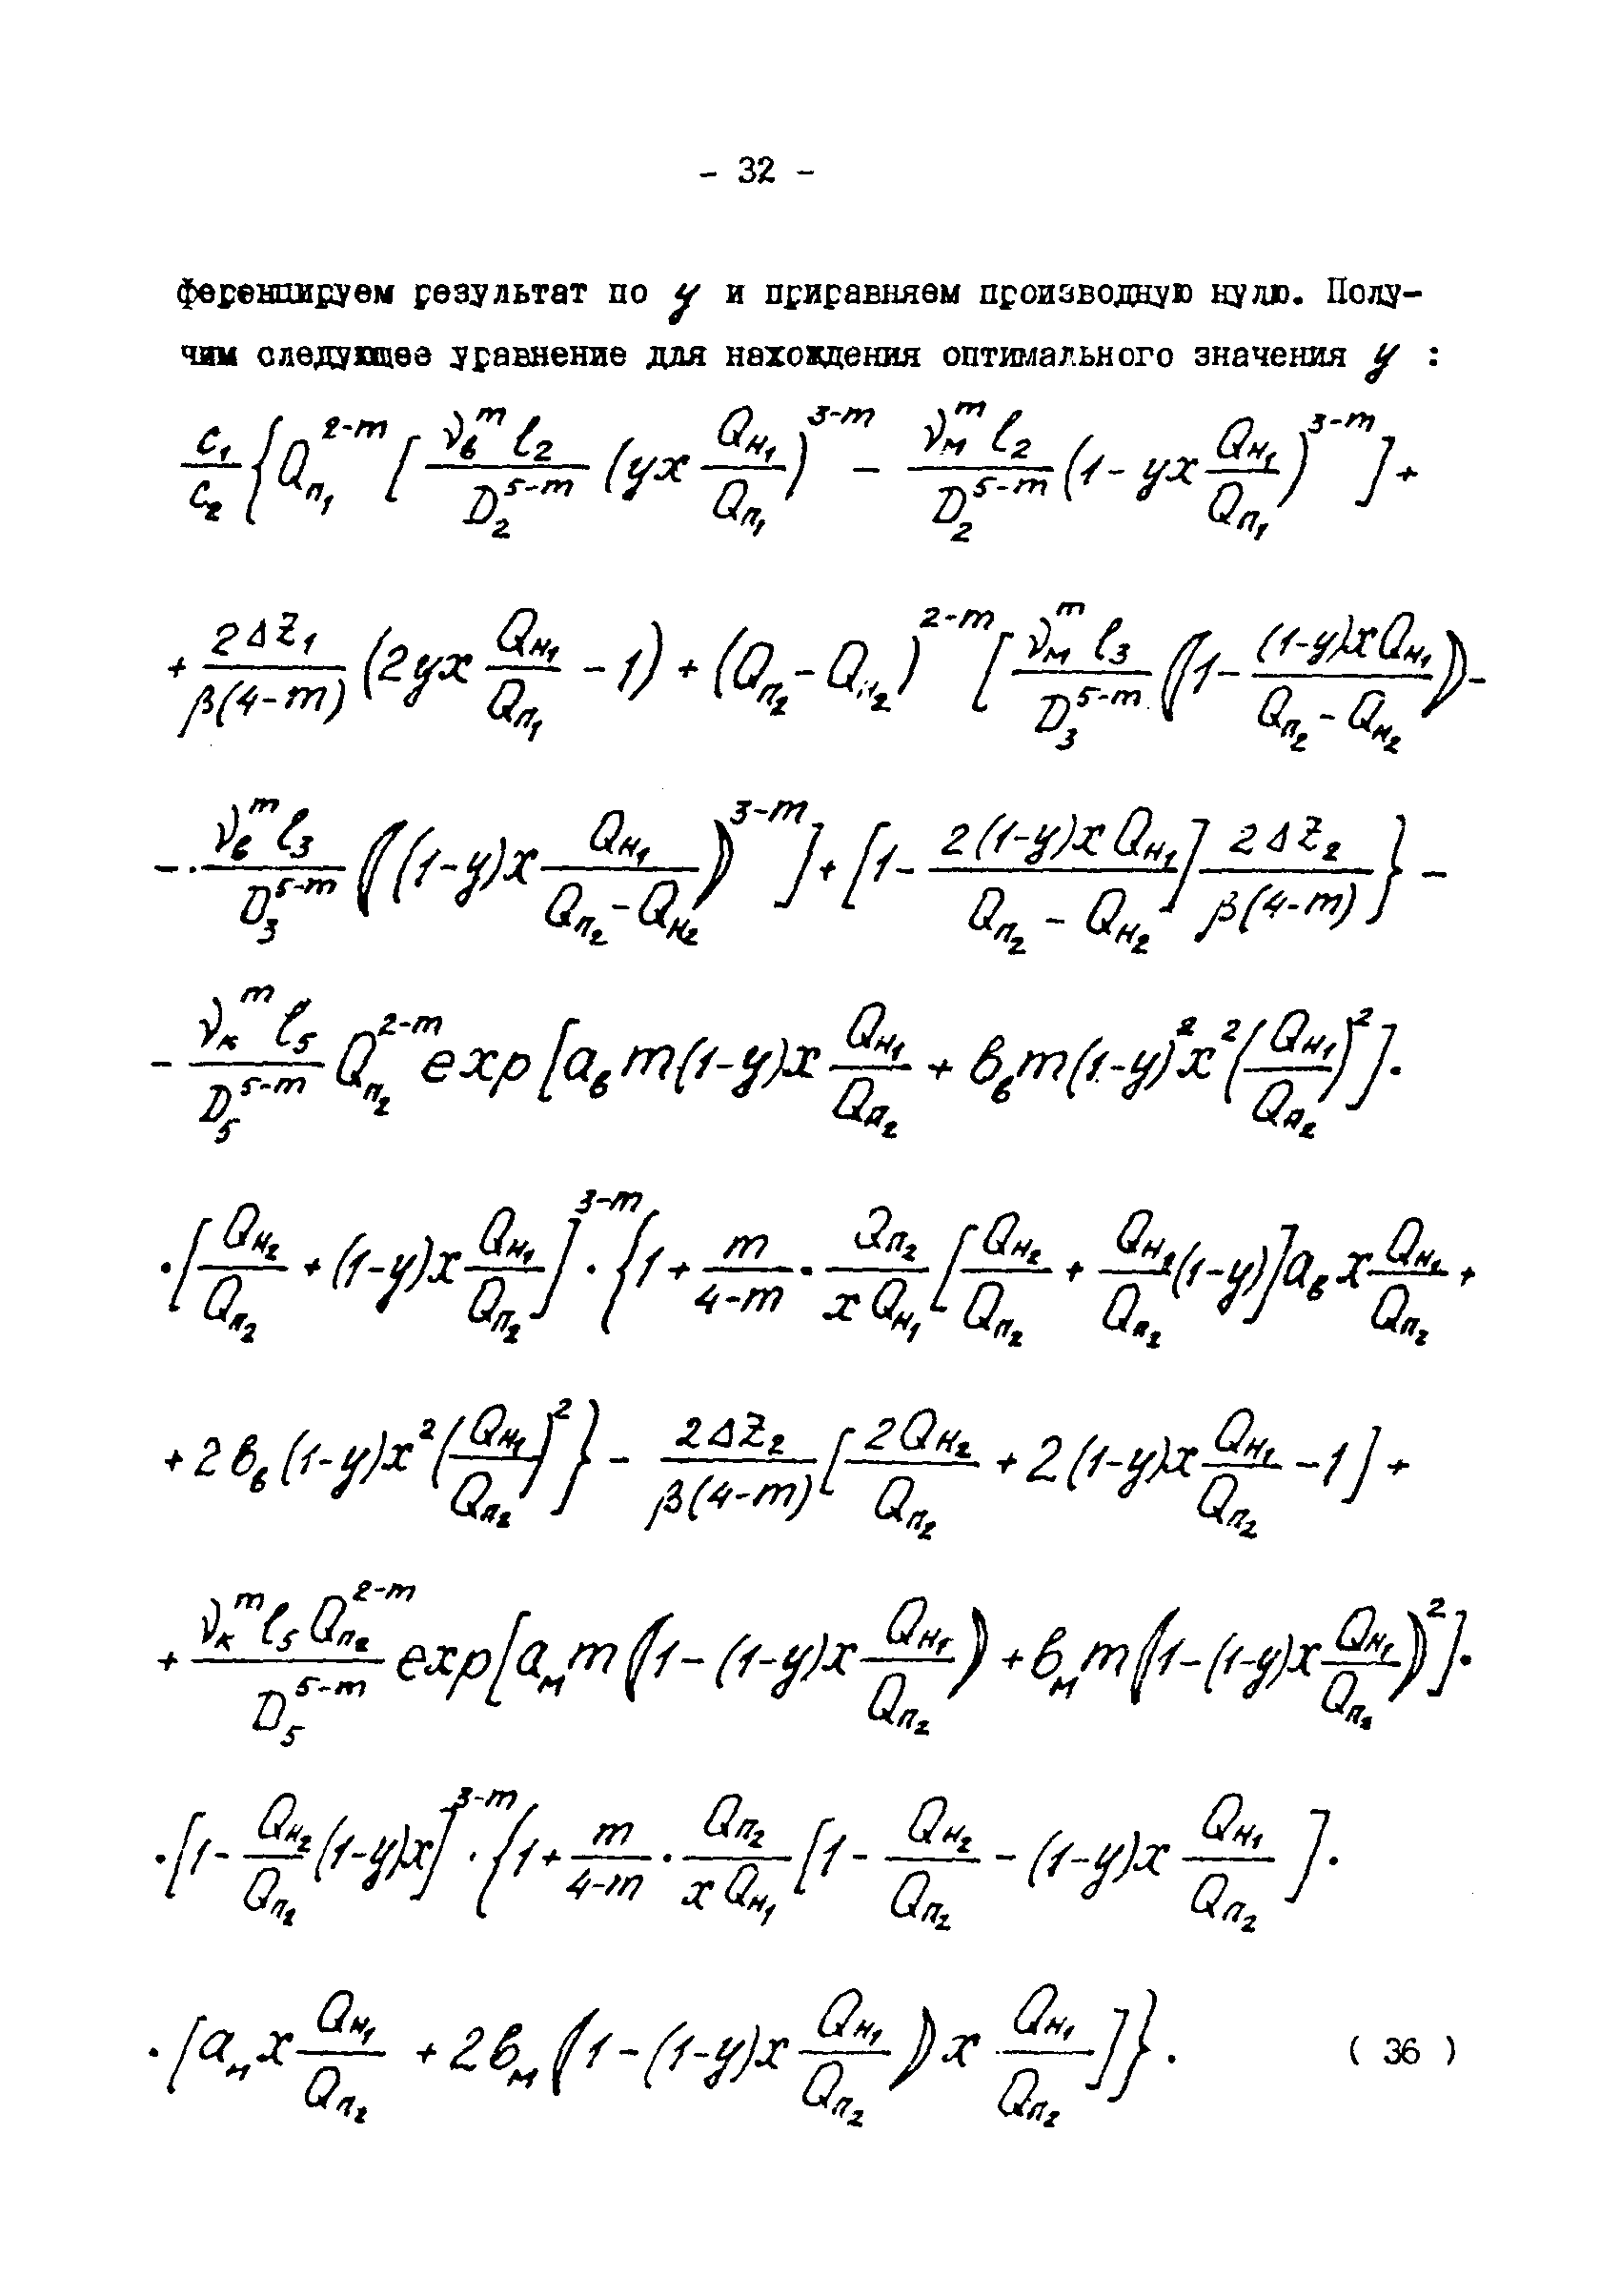 - 32 -
ференцируем результат по y и приравняем производную нулю. Полу-
чим следующее уравнение для нахождения оптимального значения y :
\frac{c_1}{c_2}\{Q_{п_1}^{2-m}[\frac{ν_в^m l_2}{D_2^{5-m}}(yx\frac{Q_{н_1}}{Q_{п_1}})^{3-m} - \frac{ν_м^m l_2}{D_2^{5-m}}(1-yx\frac{Q_{н_1}}{Q_{п_1}})^{3-m}]+
+\frac{2Δz_1}{β(4-m)}(2yx\frac{Q_{н_1}}{Q_{п_1}}-1)+(Q_{п_2}-Q_{н_2})^{2-m}[\frac{ν_м^m l_3}{D_3^{5-m}}((1-\frac{(1-y)xQ_{н_1}}{Q_{п_2}-Q_{н_2}}))-
-\cdot\frac{ν_в^m l_3}{D_3^{5-m}}(((1-y)x\frac{Q_{н_1}}{Q_{п_2}-Q_{н_2}}))^{3-m}]+[1-\frac{2(1-y)xQ_{н_1}}{Q_{п_2}-Q_{н_2}}]\frac{2Δz_2}{β(4-m)}\}-
-\frac{ν_к^m l_5}{D_5^{5-m}}Q_{п_2}^{2-m}exp[a_в m(1-y)x\frac{Q_{н_1}}{Q_{п_2}}+в_в m(1-y)^2x^2(\frac{Q_{н_1}}{Q_{п_2}})^2]\cdot
\cdot[\frac{Q_{н_2}}{Q_{п_2}}+(1-y)x\frac{Q_{н_1}}{Q_{п_2}}]^{3-m}\cdot\{1+\frac{m}{4-m}\cdot\frac{Q_{п_2}}{xQ_{н_1}}[\frac{Q_{н_2}}{Q_{п_2}}+\frac{Q_{н_2}}{Q_{п_2}}(1-y)]a_в x\frac{Q_{н_1}}{Q_{п_2}}+
+2в_в(1-y)x^2(\frac{Q_{н_1}}{Q_{п_2}})^2\}-\frac{2Δz_2}{β(4-m)}[\frac{2Q_{н_2}}{Q_{п_2}}+2(1-y)x\frac{Q_{н_1}}{Q_{п_2}}-1]+
+\frac{ν_к^m l_5 Q_{п_2}^{2-m}}{D_5^{5-m}}exp[a_м m((1-(1-y)x\frac{Q_{н_1}}{Q_{п_2}}))+в_м m((1-(1-y)x\frac{Q_{н_1}}{Q_{п_2}}))^2]\cdot
\cdot[1-\frac{Q_{н_2}}{Q_{п_2}}(1-y)x]^{3-m}\cdot\{1+\frac{m}{4-m}\cdot\frac{Q_{п_2}}{xQ_{н_1}}[1-\frac{Q_{н_2}}{Q_{п_2}}-(1-y)x\frac{Q_{н_1}}{Q_{п_2}}]\cdot
\cdot[a_м x\frac{Q_{н_1}}{Q_{п_2}}+2в_м((1-(1-y)x\frac{Q_{н_1}}{Q_{п_2}}))x\frac{Q_{н_1}}{Q_{п_2}}]\}. ( 36 )